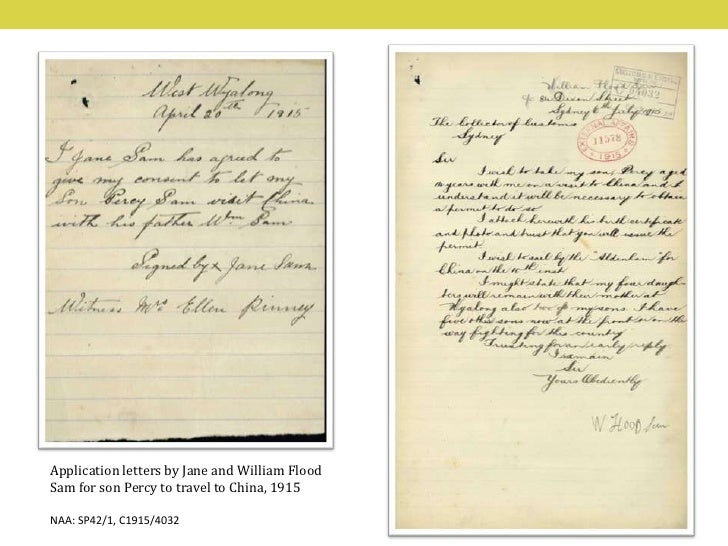 West Wyalong
April 20th 1915
I Jane Sam has agreed to
give my consent to let my
Son Percy Sam visit China
with his father Wm Sam
Signed by x Jane Sam
Witness Mrs Ellen Pinney
Application letters by Jane and William Flood
Sam for son Percy to travel to China, 1915
NAA: SP42/1, C1915/4032
William Flood Sam
Dixon Street
Sydney 6th July 1915
The Collector of Customs
Sydney
EXTERNAL AFFAIRS
11578
1915
Sir
I wish to take my son, Percy aged
years with me on a visit to China and I
understand it will be necessary to obtain
a permit to do so
I attach herewith his birth certificate
and photo and trust that you will issue the
permit.
I wish to sail by the "Aldenham" for
China on the inst
I might state that my four daugh-
ters will remain with their mother at
Wyalong also two of my sons. I have
five other sons now at the front or on the
way fighting for this country
Trusting for an early reply
I remain
Sir
Yours Obediently
W Flood Sam